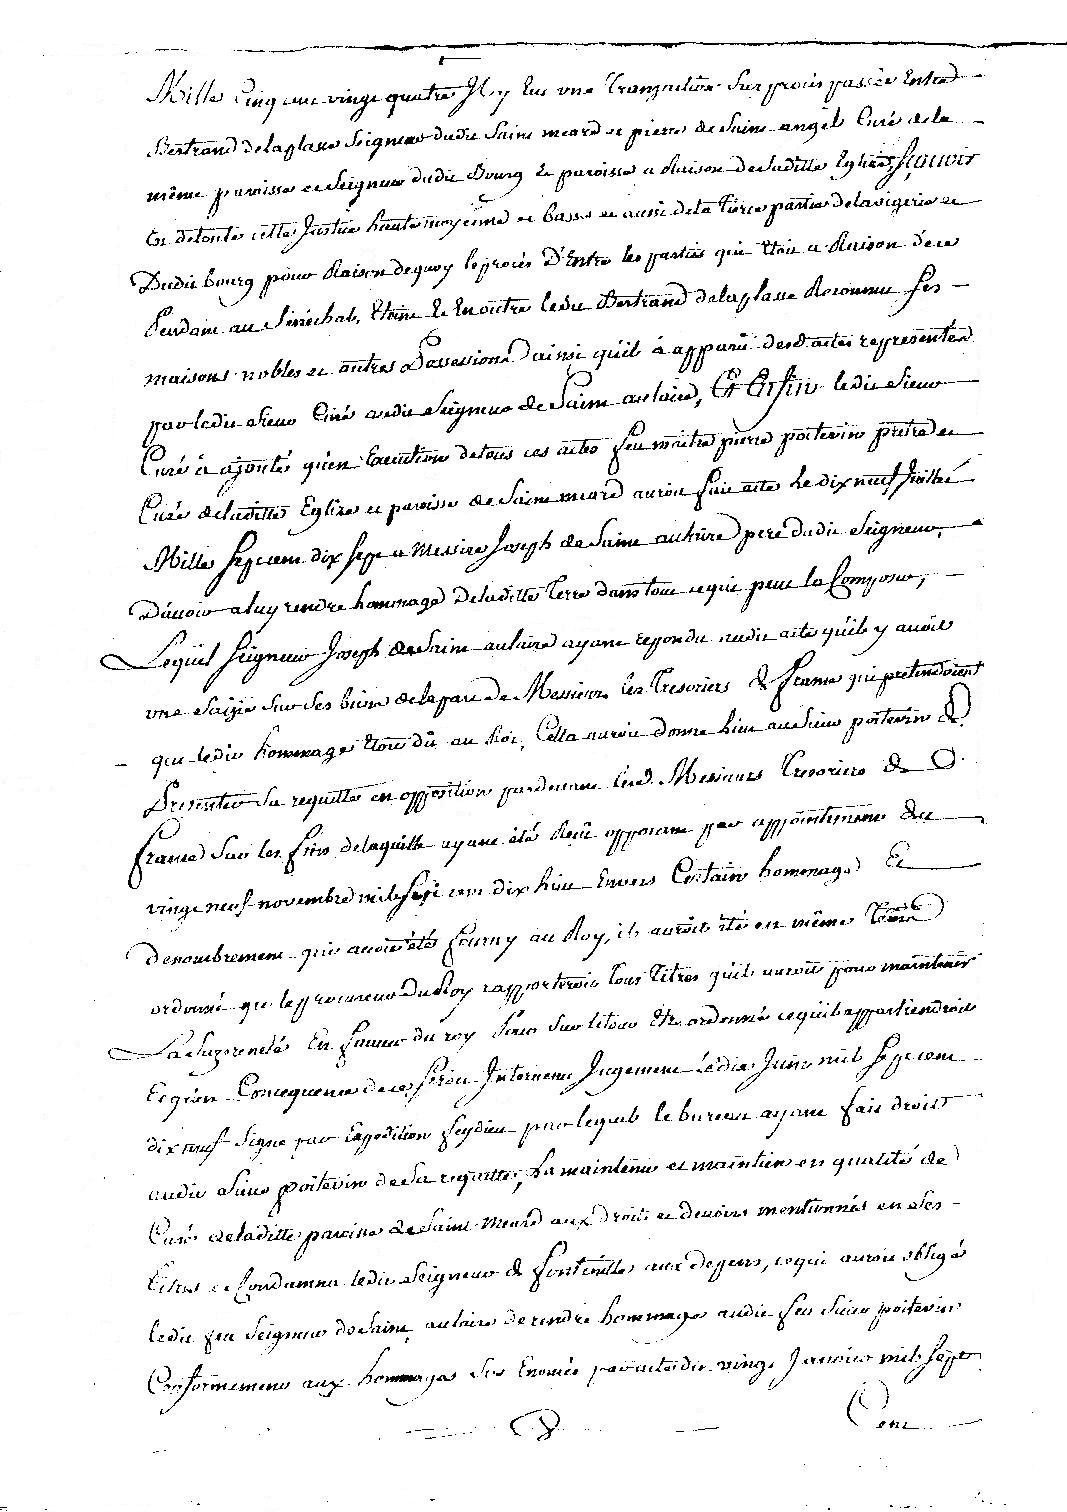 Mille cinq cent vingt quatre Il y eut une Transaction sur procès passée Entre
Bertrand de la plasse Seigneur dudit Saint meard et pierre de Saint angel Curé de la
même paroisse et Seigneur dudit Bourg et paroisse a Raison de Laditte Eglise, sçauoir
Est de toute cette Justice haute moyenne et basse et aussi de la Tierce partie de la vigerie et
Dudit bourg pour Raison de quoy le procès D'Entre les parties qui Etoit a Raison de ce
Pendant au Sénéchal, Eteint Et En outre ledit Bertrand de la plasse Reconnu ses
maisons nobles et autres Possessions ainsi qu'il à apparû desd actes representés
par ledit Sieur Curé audit Seigneur de Saint aulaire, Et Enfin ledit Sieur
Curé à ajouté qu'en Execution de tous ces actes feu maitre pierre poitevin prêtre et
Curé de laditte Eglise et paroisse de Saint meard auroit fait acte Le dix neuf Juillet
Mille sept cent dix sept a Messire Joseph de Saint aulaire pere dudit Seigneur,
D'auoir a luy rendre hommage De laditte Terre dans tout ce qui peut la Composer,
Lequel Seigneur Joseph de Saint aulaire ayant repondu audit acte qu'il y auoit
une Saizie sur ses biens de la part de Messieurs les Tresoriers de france qui pretendoient
que ledit hommage Etoit dû au Roi, Cella auroit donné lieu au Sieur poitevin de
Presenter Sa requette en opposition pardevant lesd. Messieurs Tresoriers de
france Sur les fins de laquelle ayant été Reçû opposant par appointement du
vingt neuf novembre mil sept cent dix huit Envers Certain hommage Et
Denombrement qui auoit été fourny au Roy, il auroit été en même Tems
ordonné que le procureur Du Roy rapporteroit Tous Titres qu'il auroit pour maintenir
La Suzereneté En faueur du roy pour sur le tout Etre ordonné ce qu'il appartiendroit
Et qu'en Consequence de ce seroit Intervenu Jugement le dix Juin mil sept cent
dix neuf Signé par Expedition feydieu par lequel le bureau ayant fait droit
audit Sieur poitevin de Sa requette, La maintenu et maintien en qualité de
Curé de laditte paroisse de Saint Meard aux droits et devoirs mentionnés en Ses
Titres et Condamna ledit Seigneur de fontenilles aux depens, ce qui auroit obligé
ledit feu Seigneur de Saint aulaire de rendre hommage audit feu Sieur poitevin
Conformement aux hommages Sus Enoncés par acte du vingt Janvier mil sept
Cent